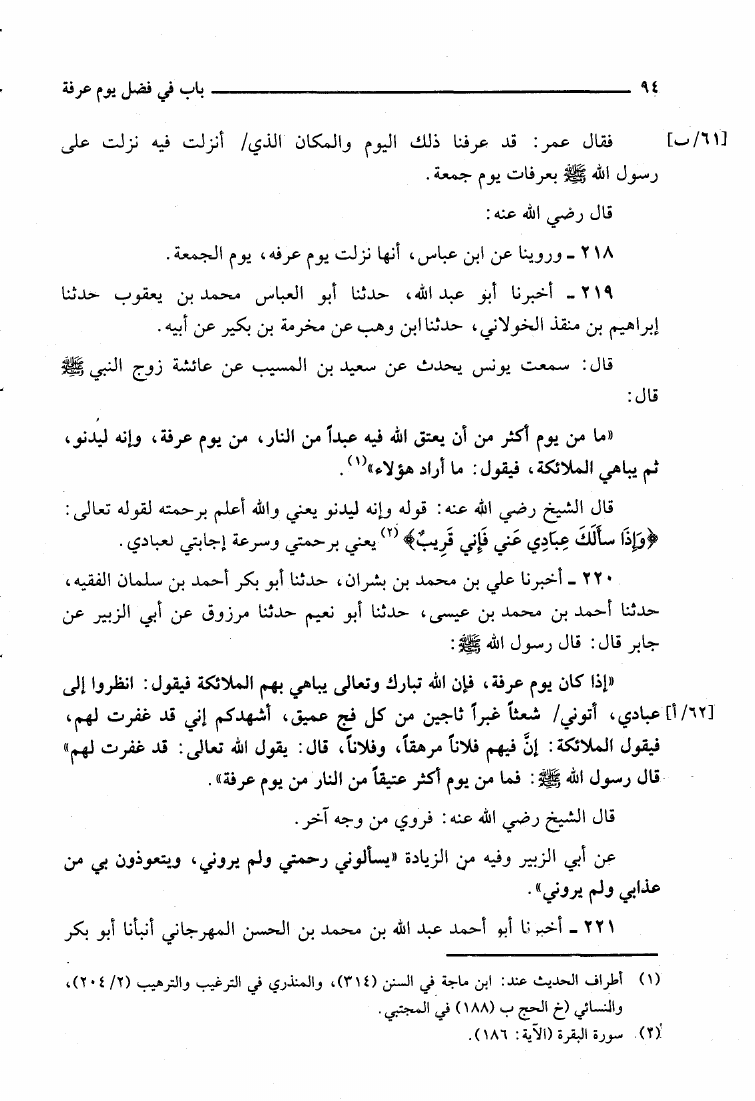 ٩٤ باب في فضل يوم عرفة
[٦١/ب] فقال عمر: قد عرفنا ذلك اليوم والمكان الذي/ أنزلت فيه نزلت على
رسول الله ﷺ بعرفات يوم جمعة.
قال رضي الله عنه:
٢١٨ ـ وروينا عن ابن عباس، أنها نزلت يوم عرفه، يوم الجمعة.
٢١٩ ـ أخبرنا أبو عبد الله، حدثنا أبو العباس محمد بن يعقوب حدثنا
إبراهيم بن منقذ الخولاني، حدثنا ابن وهب عن مخرمة بن بكير عن أبيه.
قال: سمعت يونس يحدث عن سعيد بن المسيب عن عائشة زوج النبي ﷺ
قال:
«ما من يوم أكثر من أن يعتق الله فيه عبداً من النار، من يوم عرفة، وإنه ليدنو،
ثم يباهي الملائكة، فيقول: ما أراد هؤلاء»(١).
قال الشيخ رضي الله عنه: قوله وإنه ليدنو يعني والله أعلم برحمته لقوله تعالى:
﴿وَإِذَا سألَكَ عِبَادِي عَني فَإِني قَرِيبٌ﴾(٢) يعني برحمتي وسرعة إجابتي لعبادي.
٢٢٠ ـ أخبرنا علي بن محمد بن بشران، حدثنا أبو بكر أحمد بن سلمان الفقيه،
حدثنا أحمد بن محمد بن عيسى، حدثنا أبو نعيم حدثنا مرزوق عن أبي الزبير عن
جابر قال: قال رسول الله ﷺ:
«إذا كان يوم عرفة، فإن الله تبارك وتعالى يباهي بهم الملائكة فيقول: انظروا إلى
[٦٢/أ] عبادي، أتوني/ شعثاً غبراً ثاجين من كل فج عميق، أشهدكم إني قد غفرت لهم،
فيقول الملائكة: إنَّ فيهم فلاناً مرهقاً، وفلاناً، قال: يقول الله تعالى: قد غفرت لهم»
قال رسول الله ﷺ: فما من يوم أكثر عتيقاً من النار من يوم عرفة».
قال الشيخ رضي الله عنه: فروي من وجه آخر.
عن أبي الزبير وفيه من الزيادة «يسألوني رحمتي ولم يروني، ويتعوذون بي من
عذابي ولم يروني».
٢٢١ ـ أخبرنا أبو أحمد عبد الله بن محمد بن الحسن المهرجاني أنبأنا أبو بكر
(١) أطراف الحديث عند: ابن ماجة في السنن (٣١٤)، والمنذري في الترغيب والترهيب (٢/٢٠٤)،
والنسائي (خ الحج ب (١٨٨) في المجتبي.
(٢) سورة البقرة (الآية: ١٨٦).